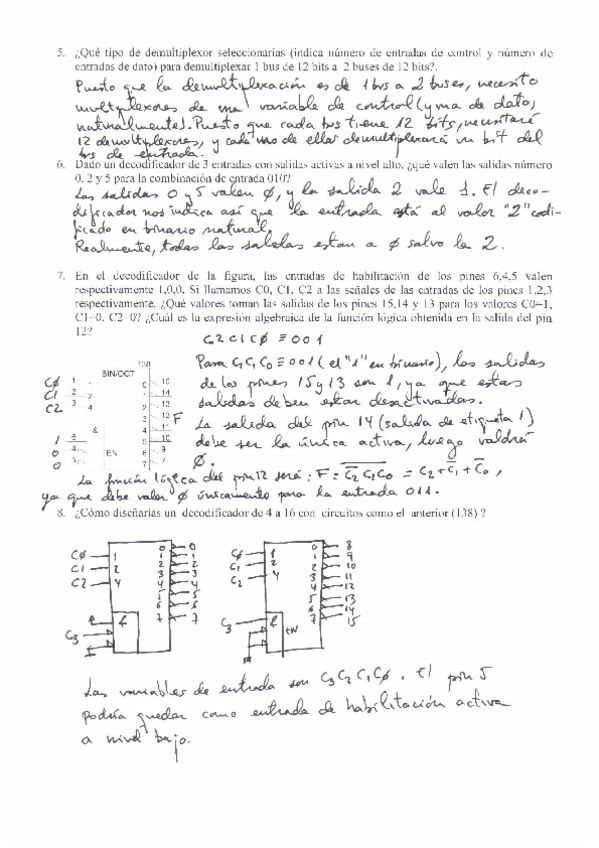 5. ¿Qué tipo de demultiplexor seleccionarías (indica número de entradas de control y número de
entradas de dato) para demultiplexar 1 bus de 12 bits a 2 buses de 12 bits?.
Puesto que la demultiplexación es de 1 bus a 2 buses, necesito
multiplexores de una variable de control (y una de dato,
naturalmente). Puesto que cada bus tiene 12 bits, necesitaré
12 demultiplexores, y cada uno de ellos demultiplexará un bit del
bus de entrada.
6. Dado un decodificador de 3 entradas con salidas activas a nivel alto, ¿qué valen las salidas número
0, 2 y 5 para la combinación de entrada 010?
Las salidas 0 y 5 valen Ø, y la salida 2 vale 1. El deco-
dificador nos indica así que la entrada está al valor "2" codi-
ficado en binario natural.
Realmente, todas las salidas estan a Ø salvo la 2.
7. En el decodificador de la figura, las entradas de habilitación de los pines 6,4,5 valen
respectivamente 1,0,0. Si llamamos C0, C1, C2 a las señales de las entradas de los pines 1,2,3
respectivamente. ¿Qué valores toman las salidas de los pines 15,14 y 13 para los valores C0=1,
C1=0, C2=0? ¿Cuál es la expresión algebraica de la función lógica obtenida en la salida del pin
12?
C2 C1 CØ ≡ 001
Para C2C1C0 ≡ 001 (el "1" en binario), las salidas
de los pines 15 y 13 son 1, ya que estas
salidas deben estar desactivadas.
La salida del pin 14 (salida de etiqueta 1)
debe ser la única activa, luego valdrá
Ø.
138
BIN/OCT
CØ 1 1 0 15
C1 2 2 1 14
C2 3 4 2 13
3 12 F
& 4 11
1 6 5 10
0 4 EN 6 9
0 5 7 7
La función lógica del pin 12 será: F = C̅2̅ ̅C̅1̅C̅0̅ = C2+C̅1+C̅0,
ya que debe valer Ø únicamente para la entrada 011.
8. ¿Cómo diseñarías un decodificador de 4 a 16 con circuitos como el anterior (138) ?
CØ 1 0 0
C1 2 1 1
C2 4 2 2
3 3
4 4
5 5
6 6
C3 & 7 7
CØ 1 0 8
C1 2 1 9
C2 4 2 10
3 11
4 12
5 13
6 14
C3 & EN 7 15
Las variables de entrada son C3C2C1CØ. El pin 5
podría quedar como entrada de habilitación activa
a nivel bajo.